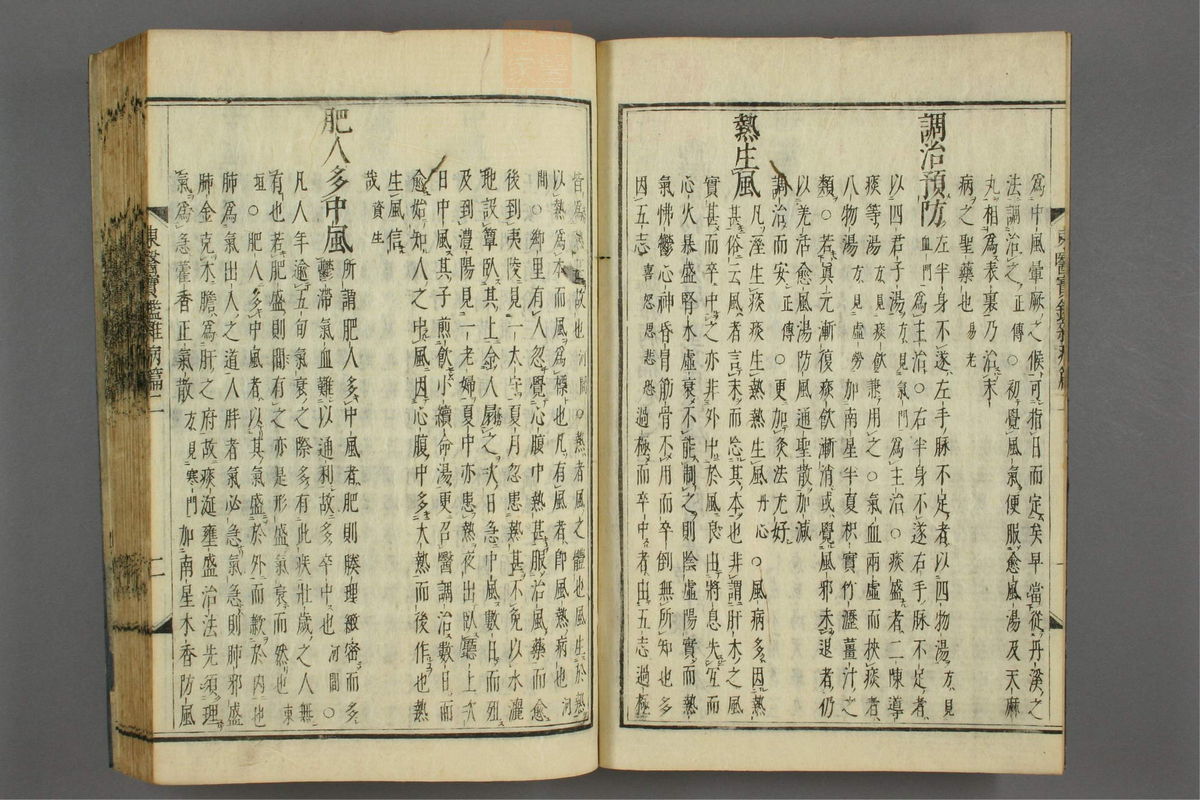 爲中風暈厥之候可指日而定矣早當從丹溪之
法調治之正傳○初覺風氣便服愈風湯及天麻
丸相爲表裏乃治未
病之聖藥也易老
調治預防
左半身不遂左手脉不足者以四物湯方見
血門爲主治○右半身不遂右手脉不足者
以四君子湯方見氣門爲主治○痰盛者二陳導
痰等湯方見痰飮兼用之○氣血兩虛而挾痰者
八物湯方見虛勞加南星半夏枳實竹瀝薑汁之
類○若眞元漸復痰飮漸消或覺風邪未退者仍
以羌活愈風湯防風通聖散加減
調治而安正傳○更加灸法尤好
熱生風
凡濕生痰痰生熱熱生風丹心○風病多因熱
甚俗云風者言末而忘其本也非謂肝木之風
實甚而卒中之亦非外中於風良由將息失宜而
心火暴盛腎水虛衰不能制之則陰虛陽實而熱
氣怫鬱心神昏冒筋骨不用而卒倒無所知也多
因五志喜怒思悲恐過極而卒中者由五志過極
皆爲熱甚故也河間○熱者風之體也風生於熱
以熱爲本而風爲標也凡有風者卽風熱病也河
間○鄕里有人忽覺心腹中熱甚服治風藥而愈
後到夷陵見一太守夏月忽患熱甚不免以水灑
地設簟臥其上令人扇之次日急中風數日而殂
及到澧陽見一老婦夏中亦患熱夜出臥廳上次
日中風其子煎飮小續命湯更召醫調治數日而
愈始知人之中風因心腹中多大熱而後作也熱
生風信
哉資生
肥人多中風
所謂肥人多中風者肥則腠理緻密而多
鬱滯氣血難以通利故多卒中也河間○
凡人年逾五旬氣衰之際多有此疾壯歲之人無
有也若肥盛則間有之亦是形盛氣衰而然也東
垣○肥人多中風者以其氣盛於外而歉於內也
肺爲氣出入之道人胖者氣必急氣急則肺邪盛
肺金克木膽爲肝之府故痰涎壅盛治法先須理
氣爲急藿香正氣散方見寒門加南星木香防風
東醫寶鑑雜病篇二
二